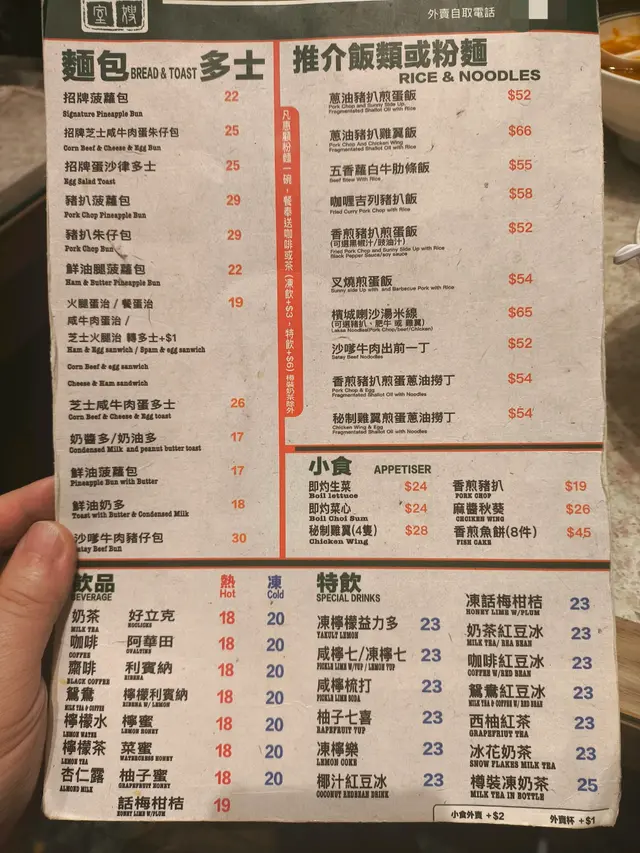 室 嫂
外賣自取電話
麵包 BREAD & TOAST 多士
招牌菠蘿包 22
Signature Pineapple Bun
招牌芝士咸牛肉蛋朱仔包 25
Corn Beef & Cheese & Egg Bun
招牌蛋沙律多士 25
Egg Salad Toast
豬扒菠蘿包 29
Pork Chop Pineapple Bun
豬扒朱仔包 29
Pork Chop Bun
鮮油腿菠蘿包 22
Ham & Butter Pineapple Bun
火腿蛋治 / 餐蛋治 19
咸牛肉蛋治 /
芝士火腿治 轉多士+$1
Ham & Egg sanwich / Spam & egg sanwich
Corn Beef & egg sanwich
Cheese & Ham sandwich
芝士咸牛肉蛋多士 26
Corn Beef & Cheese & Egg toast
奶醬多/奶油多 17
Condensed Milk and peanut butter toast
鮮油菠蘿包 17
Pineapple Bun with Butter
鮮油奶多 18
Toast with Butter & Condensed Milk
沙嗲牛肉豬仔包 30
Satay Beef Bun
凡惠顧粉麵一碗，餐奉送咖啡或茶(凍飲+$3，特飲+$6)樽裝奶茶除外
推介飯類或粉麵
RICE & NOODLES
蔥油豬扒煎蛋飯 $52
Pork Chop and Sunny Side Up
Fragmentated Shallot Oil with Rice
蔥油豬扒雞翼飯 $66
Pork Chop And Chicken Wing
Fragmentated Shallot Oil with Rice
五香蘿白牛肋條飯 $55
Beef Stew With Rice
咖喱吉列豬扒飯 $58
Fried Curry Pork Chop with Rice
香煎豬扒煎蛋飯 $52
(可選黑椒汁/豉油汁)
Fried Pork Chop and Sunny Side Up with Rice
Black Pepper Sauce/soy sauce
叉燒煎蛋飯 $54
Sunny side Up with and Barbecue Pork with Rice
檳城喇沙湯米線 $65
(可選豬扒、肥牛 或 雞翼)
Laksa Noodles(Pork Chop/beef/Chicken)
沙嗲牛肉出前一丁 $52
Satay Beef Nododles
香煎豬扒煎蛋蔥油撈丁 $54
Pork Chop & Egg
Fragmentated Shallot Oil with Noodles
秘制雞翼煎蛋蔥油撈丁 $54
Chicken Wing & Egg
Fragmentated Shallot Oil with Noodles
小食 APPETISER
即灼生菜 $24
Boil lettuce
即灼菜心 $24
Boil Choi Sum
秘制雞翼(4隻) $28
Chicken Wing
香煎豬扒 $19
PORK CHOP
麻醬秋葵 $26
CHCIKEN WING
香煎魚餅(8件) $45
FISH CAKE
飲品 熱 凍
BEVERAGE Hot Cold
奶茶 好立克 18 20
MILK TEA HOLICKS
咖啡 阿華田 18 20
COFFEE OVALTINE
齋啡 利賓納 18 20
BLACK COFFEE RIBENA
鴛鴦 檸檬利賓納 18 20
MILK TEA & COFFEE RIBENA W/ LEMON
檸檬水 檸蜜 18 20
LEMON WATER LEMON HONEY
檸檬茶 菜蜜 18 20
LEMON TEA WATERCRESS HONEY
杏仁露 柚子蜜 18 20
ALMOND MILK GRAPEFRUIT HONEY
話梅柑桔 19
HONEY LIME W/PLUM
特飲
SPECIAL DRINKS
凍檸檬益力多 23
YAKULT LEMON
咸檸七/凍檸七 23
PICKLE LIME W/7UP / LEMON 7UP
咸檸梳打 23
PICKLE LIME SODA
柚子七喜 23
RAPEFRUIT 7UP
凍檸樂 23
LEMON COKE
椰汁紅豆冰 23
COCONUT REDBEAN DRINK
凍話梅柑桔 23
HONRY LIME W/PLUM
奶茶紅豆冰 23
MILK TEA/ REA BEAN
咖啡紅豆冰 23
COFFEE W/RED BEAN
鴛鴦紅豆冰 23
MILK TEA & COFFEE W/ RED BEAN
西柚紅茶 23
GRAPEFRIUT TEA
冰花奶茶 23
SNOW FLAKES MILK TEA
樽裝凍奶茶 25
MILK TEA IN BOTTLE
小食外賣 +$2 外賣杯 +$1